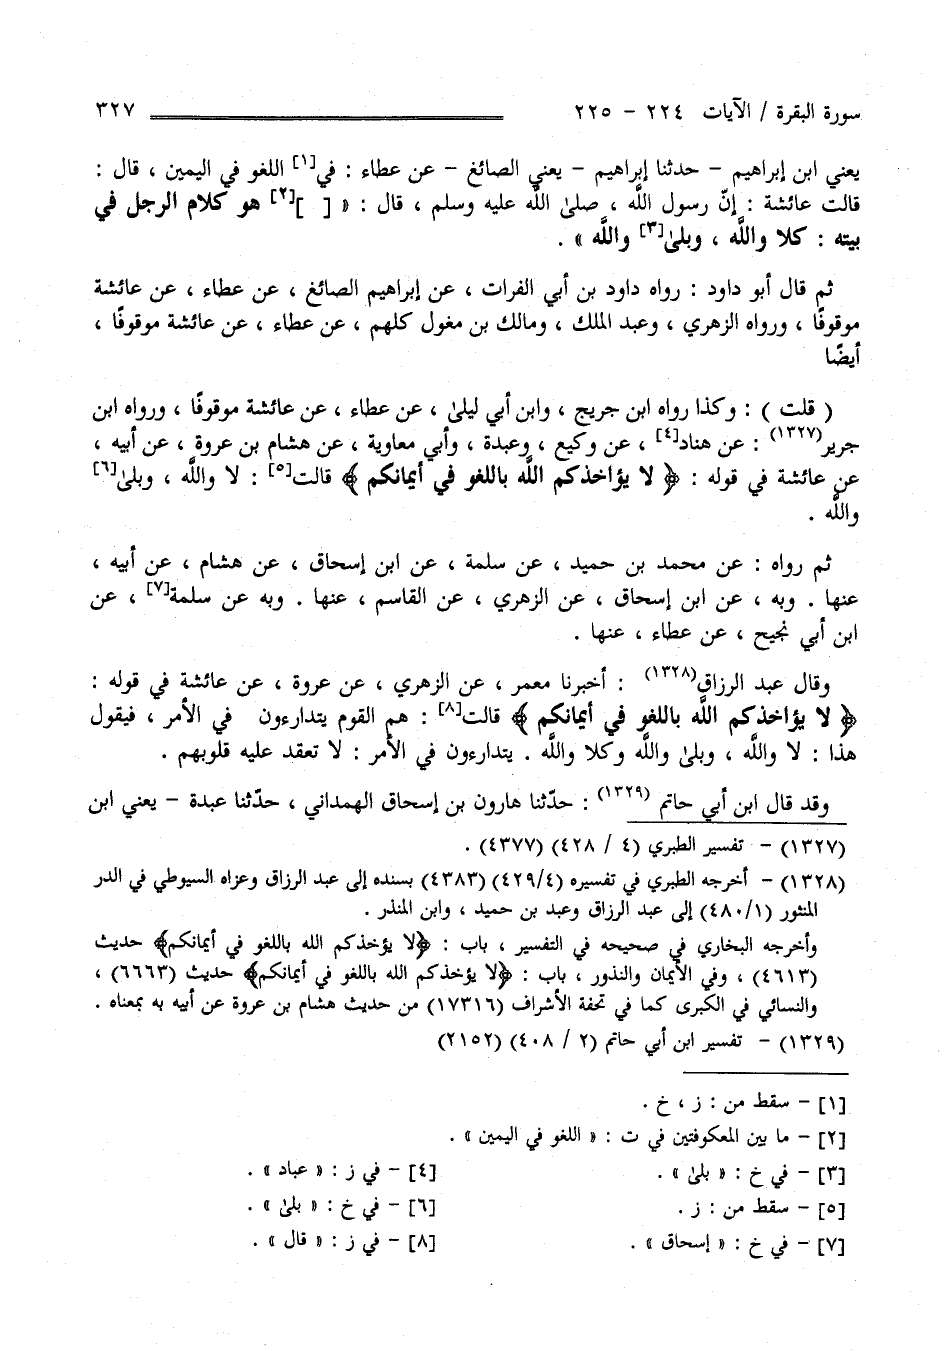 سورة البقرة / الآيات ٢٢٤ – ٢٢٥ ٣٢٧
يعني ابن إبراهيم – حدثنا إبراهيم – يعني الصائغ – عن عطاء : في[١] اللغو في اليمين ، قال :
قالت عائشة : إنّ رسول اللَّه ، صلىٰ اللَّه عليه وسلم ، قال : « [ ][٢] هو كلام الرجل في
بيته : كلا واللَّه ، وبلىٰ[٣] واللَّه » .
ثم قال أبو داود : رواه داود بن أبي الفرات ، عن إبراهيم الصائغ ، عن عطاء ، عن عائشة
موقوفًا ، ورواه الزهري ، وعبد الملك ، ومالك بن مغول كلهم ، عن عطاء ، عن عائشة موقوفًا ،
أيضًا
( قلت ) : وكذا رواه ابن جريج ، وابن أبي ليلىٰ ، عن عطاء ، عن عائشة موقوفًا ، ورواه ابن
جرير(١٣٢٧) : عن هناد[٤] ، عن وكيع ، وعبدة ، وأبي معاوية ، عن هشام بن عروة ، عن أبيه ،
عن عائشة في قوله : ﴿ لا يؤاخذكم اللَّه باللغو في أيمانكم ﴾ قالت[٥] : لا واللَّه ، وبلىٰ[٦]
واللَّه .
ثم رواه : عن محمد بن حميد ، عن سلمة ، عن ابن إسحاق ، عن هشام ، عن أبيه ،
عنها . وبه ، عن ابن إسحاق ، عن الزهري ، عن القاسم ، عنها . وبه عن سلمة[٧] ، عن
ابن أبي نجيح ، عن عطاء ، عنها .
وقال عبد الرزاق(١٣٢٨) : أخبرنا معمر ، عن الزهري ، عن عروة ، عن عائشة في قوله :
﴿ لا يؤاخذكم اللَّه باللغو في أيمانكم ﴾ قالت[٨] : هم القوم يتدارءون في الأمر ، فيقول
هذا : لا واللَّه ، وبلىٰ واللَّه وكلا واللَّه . يتدارءون في الأمر : لا تعقد عليه قلوبهم .
وقد قال ابن أبي حاتم (١٣٢٩) : حدّثنا هارون بن إسحاق الهمداني ، حدّثنا عبدة – يعني ابن
(١٣٢٧) – تفسير الطبري (٤ / ٤٢٨) (٤٣٧٧) .
(١٣٢٨) – أخرجه الطبري في تفسيره (٤/٤٢٩) (٤٣٨٣) بسنده إلى عبد الرزاق وعزاه السيوطي في الدر
المنثور (٤٨٠/١) إلى عبد الرزاق وعبد بن حميد ، وابن المنذر .
وأخرجه البخاري في صحيحه في التفسير ، باب : ﴿لا يؤخذكم الله باللغو في أيمانكم﴾ حديث
(٤٦١٣) ، وفي الأيمان والنذور ، باب : ﴿لا يؤخذكم الله باللغو في أيمانكم﴾ حديث (٦٦٦٣) ،
والنسائي في الكبرى كما في تحفة الأشراف (١٧٣١٦) من حديث هشام بن عروة عن أبيه به بمعناه .
(١٣٢٩) – تفسير ابن أبي حاتم (٢ / ٤٠٨) (٢١٥٢)
[١] – سقط من : ز ، خ .
[٢] – ما بين المعكوفتين في ت : « اللغو في اليمين » .
[٣] – في خ : « بلىٰ » . [٤] – في ز : « عباد » .
[٥] – سقط من : ز . [٦] – في خ : « بلىٰ » .
[٧] – في خ : « إسحاق » . [٨] – في ز : « قال » .